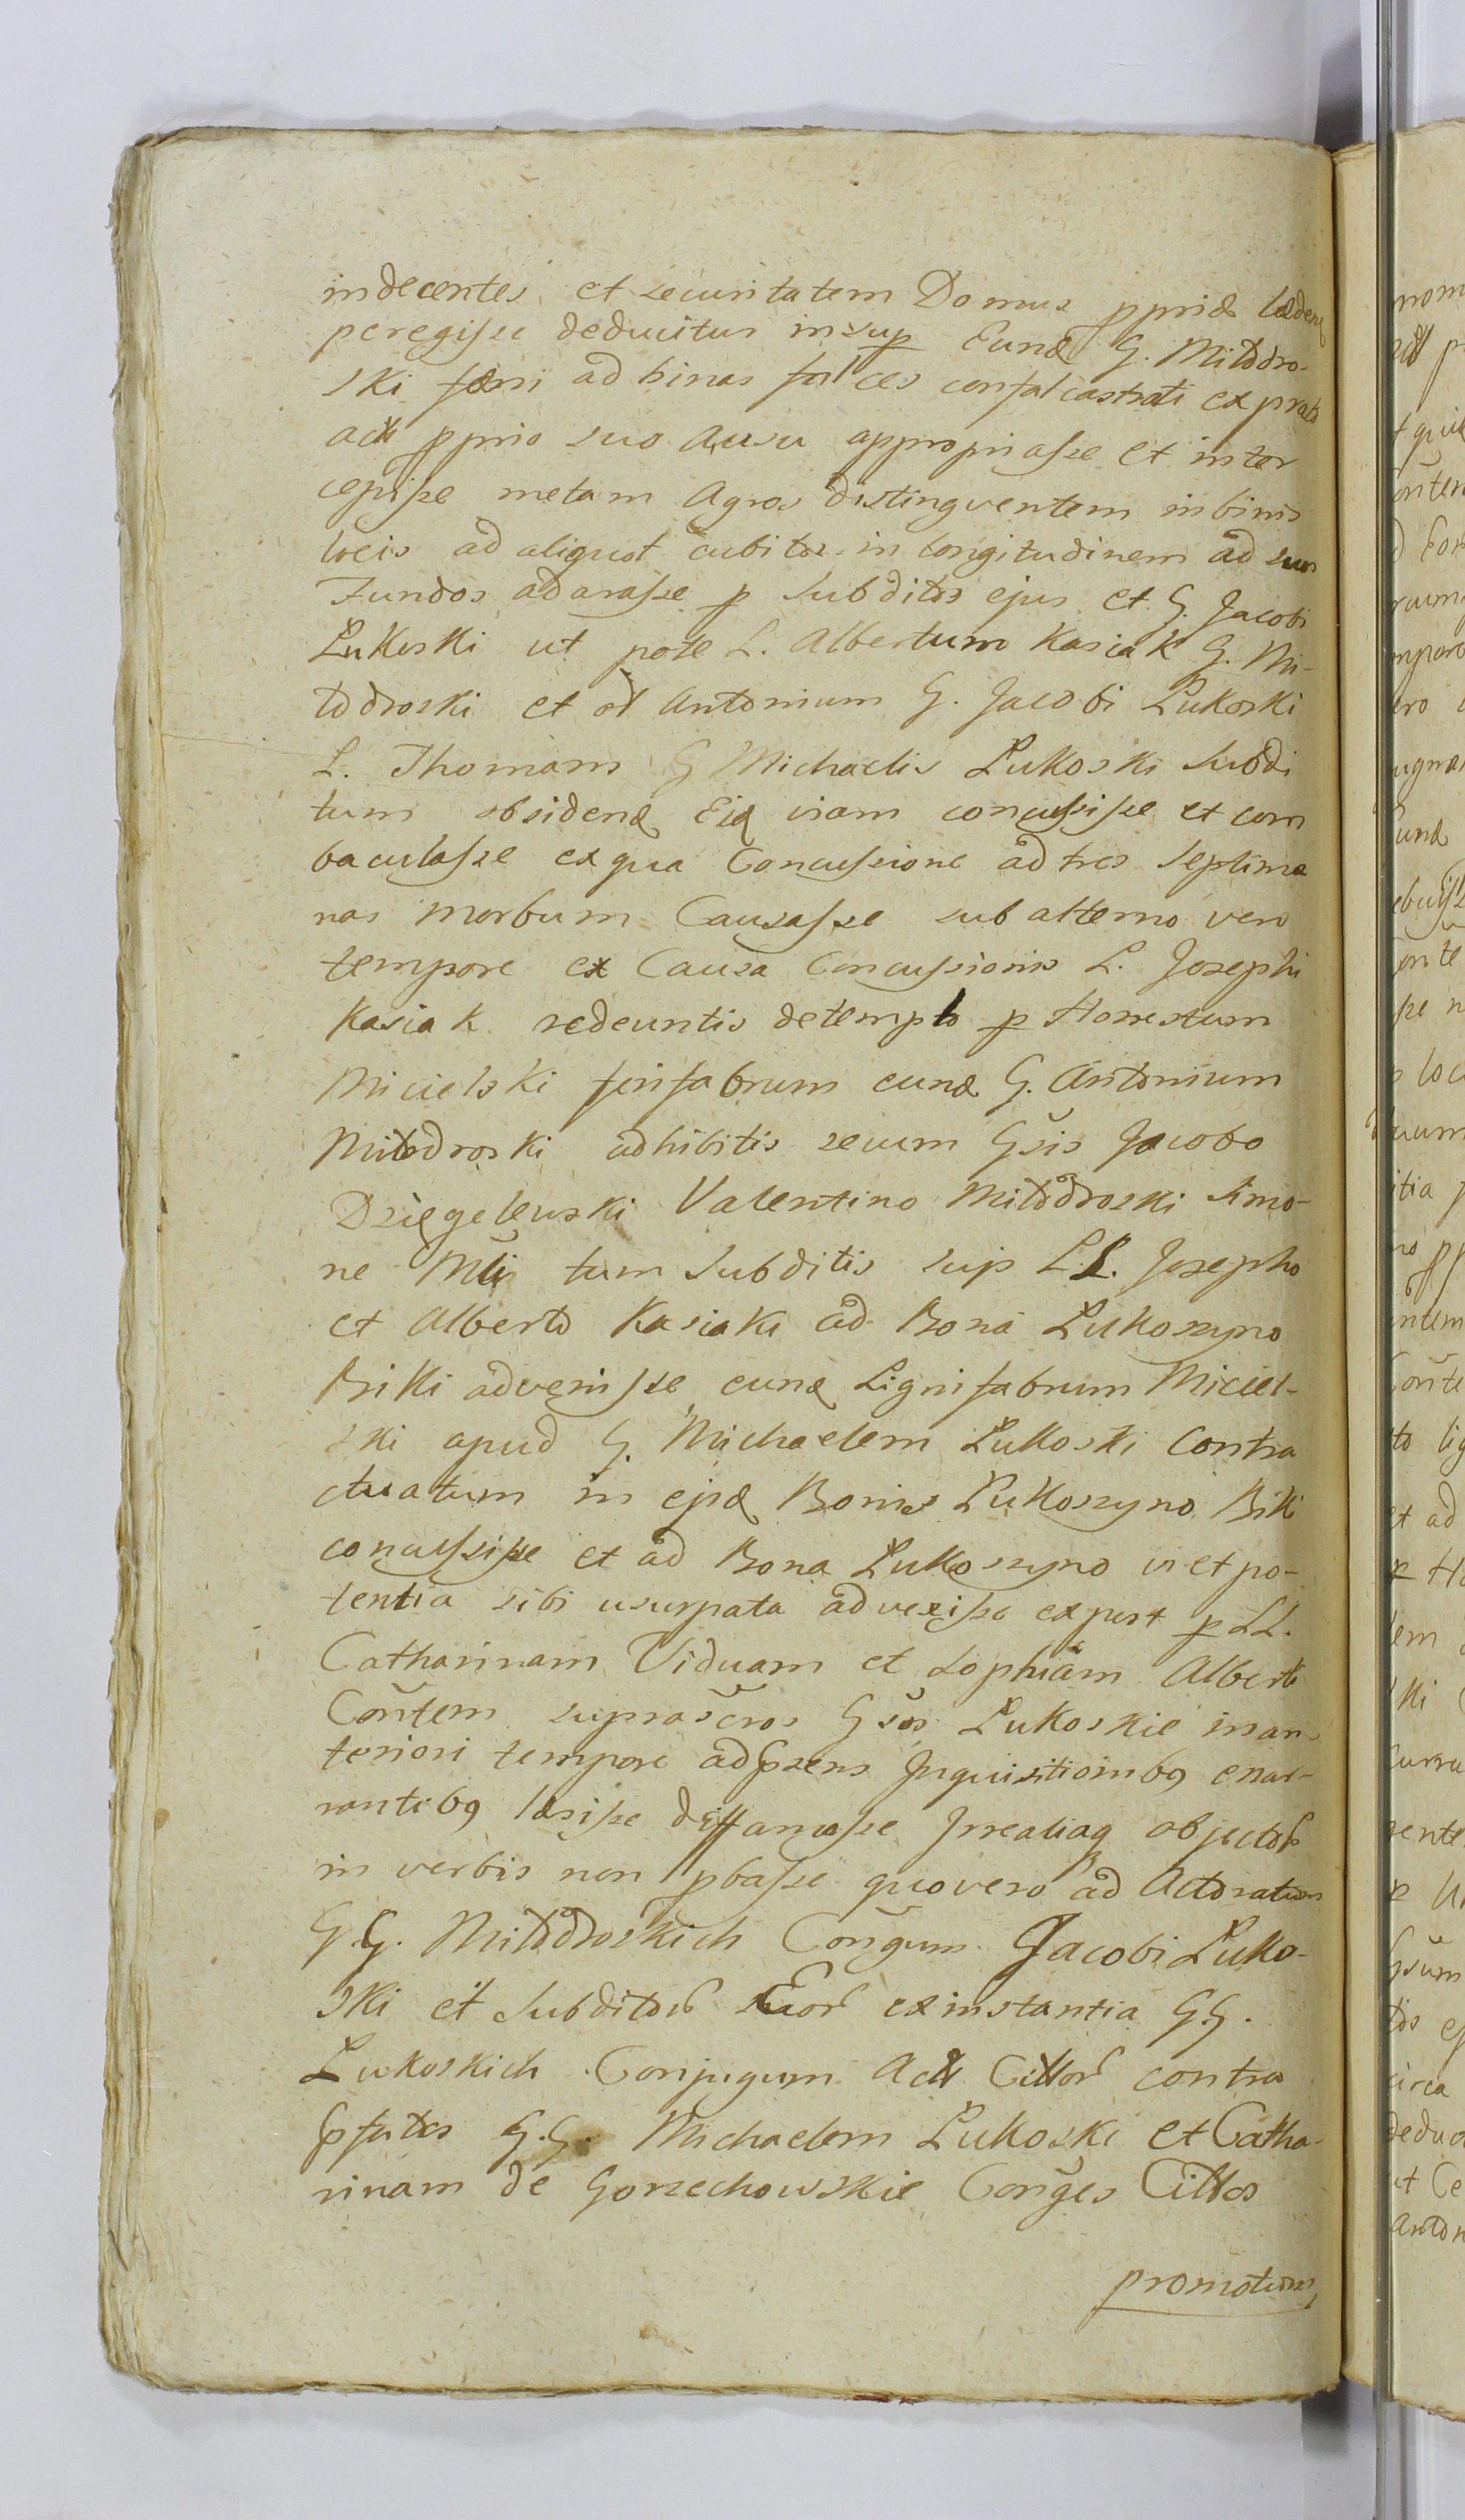 indecentes et securitatem Domus ppriæ lædend
peregisse deducitur insup Eund G. Miłodro-
ski fæni ad binas falces confalcastrati ex prato
act pprio suo Ausu appropriasse et inter
cepisse metam Agros distingventem in binis
locis ad aliquot cubitos in longitudinem ad suos
Fundos adarasse p Subditos ejus et G. Jacobi
Łukoski ut pote L. Albertum Kasiak G. Mi-
łodroski et Antonium G. Jacobi Łukoski
L. Thomam G Michaelis Łukoski Subdi
tum obsidend Eid viam concussisse et com
baculasse ex qua Concussione ad tres Septima
nas morbum Causasse sub alterno vero
tempore ex Causa Concussionis L. Josephi
Kasiak redeuntis de templo p Honestum
Micielski ferifabrum eund G. Antonium
Miłodroski adhibitis secum Gsis Jacobo
Dzięgelewski Valentino Miłodroski Simo-
ne tum Subditis suis LL. Josepho
et Alberto Kasiaki ad Bona Łukoszyno
Biki advenisse eund Lignifabrum Miciel-
ski apud G. Michaelem Łukoski Contra
ctuatum in ejsd Bonis Łukoszyno Biki
concussisse et ad Bona Łukoszyno vi et po-
tentia sibi usurpata advexisse ex post p LL.
Catharinam Viduam et Sophiam Alberti
Cõntem suprascros Gsos Łukoskie in an-
teriori tempore ad psens Inquisitionibg enar-
rantibg læsisse diffamasse Irrealiaq objectasse
in verbis non pbasse quovero ad Actoratum
G.G. Miłodroskich Congum Jacobi Łuko-
ski et Subditor Suor ex instantia GG.
Łukoskich Conjugum Act Cittor contra
psatos G.G. Michaelem Łukoski et Catha-
rinam de Gorzechowskie Conges Cittos
promotum